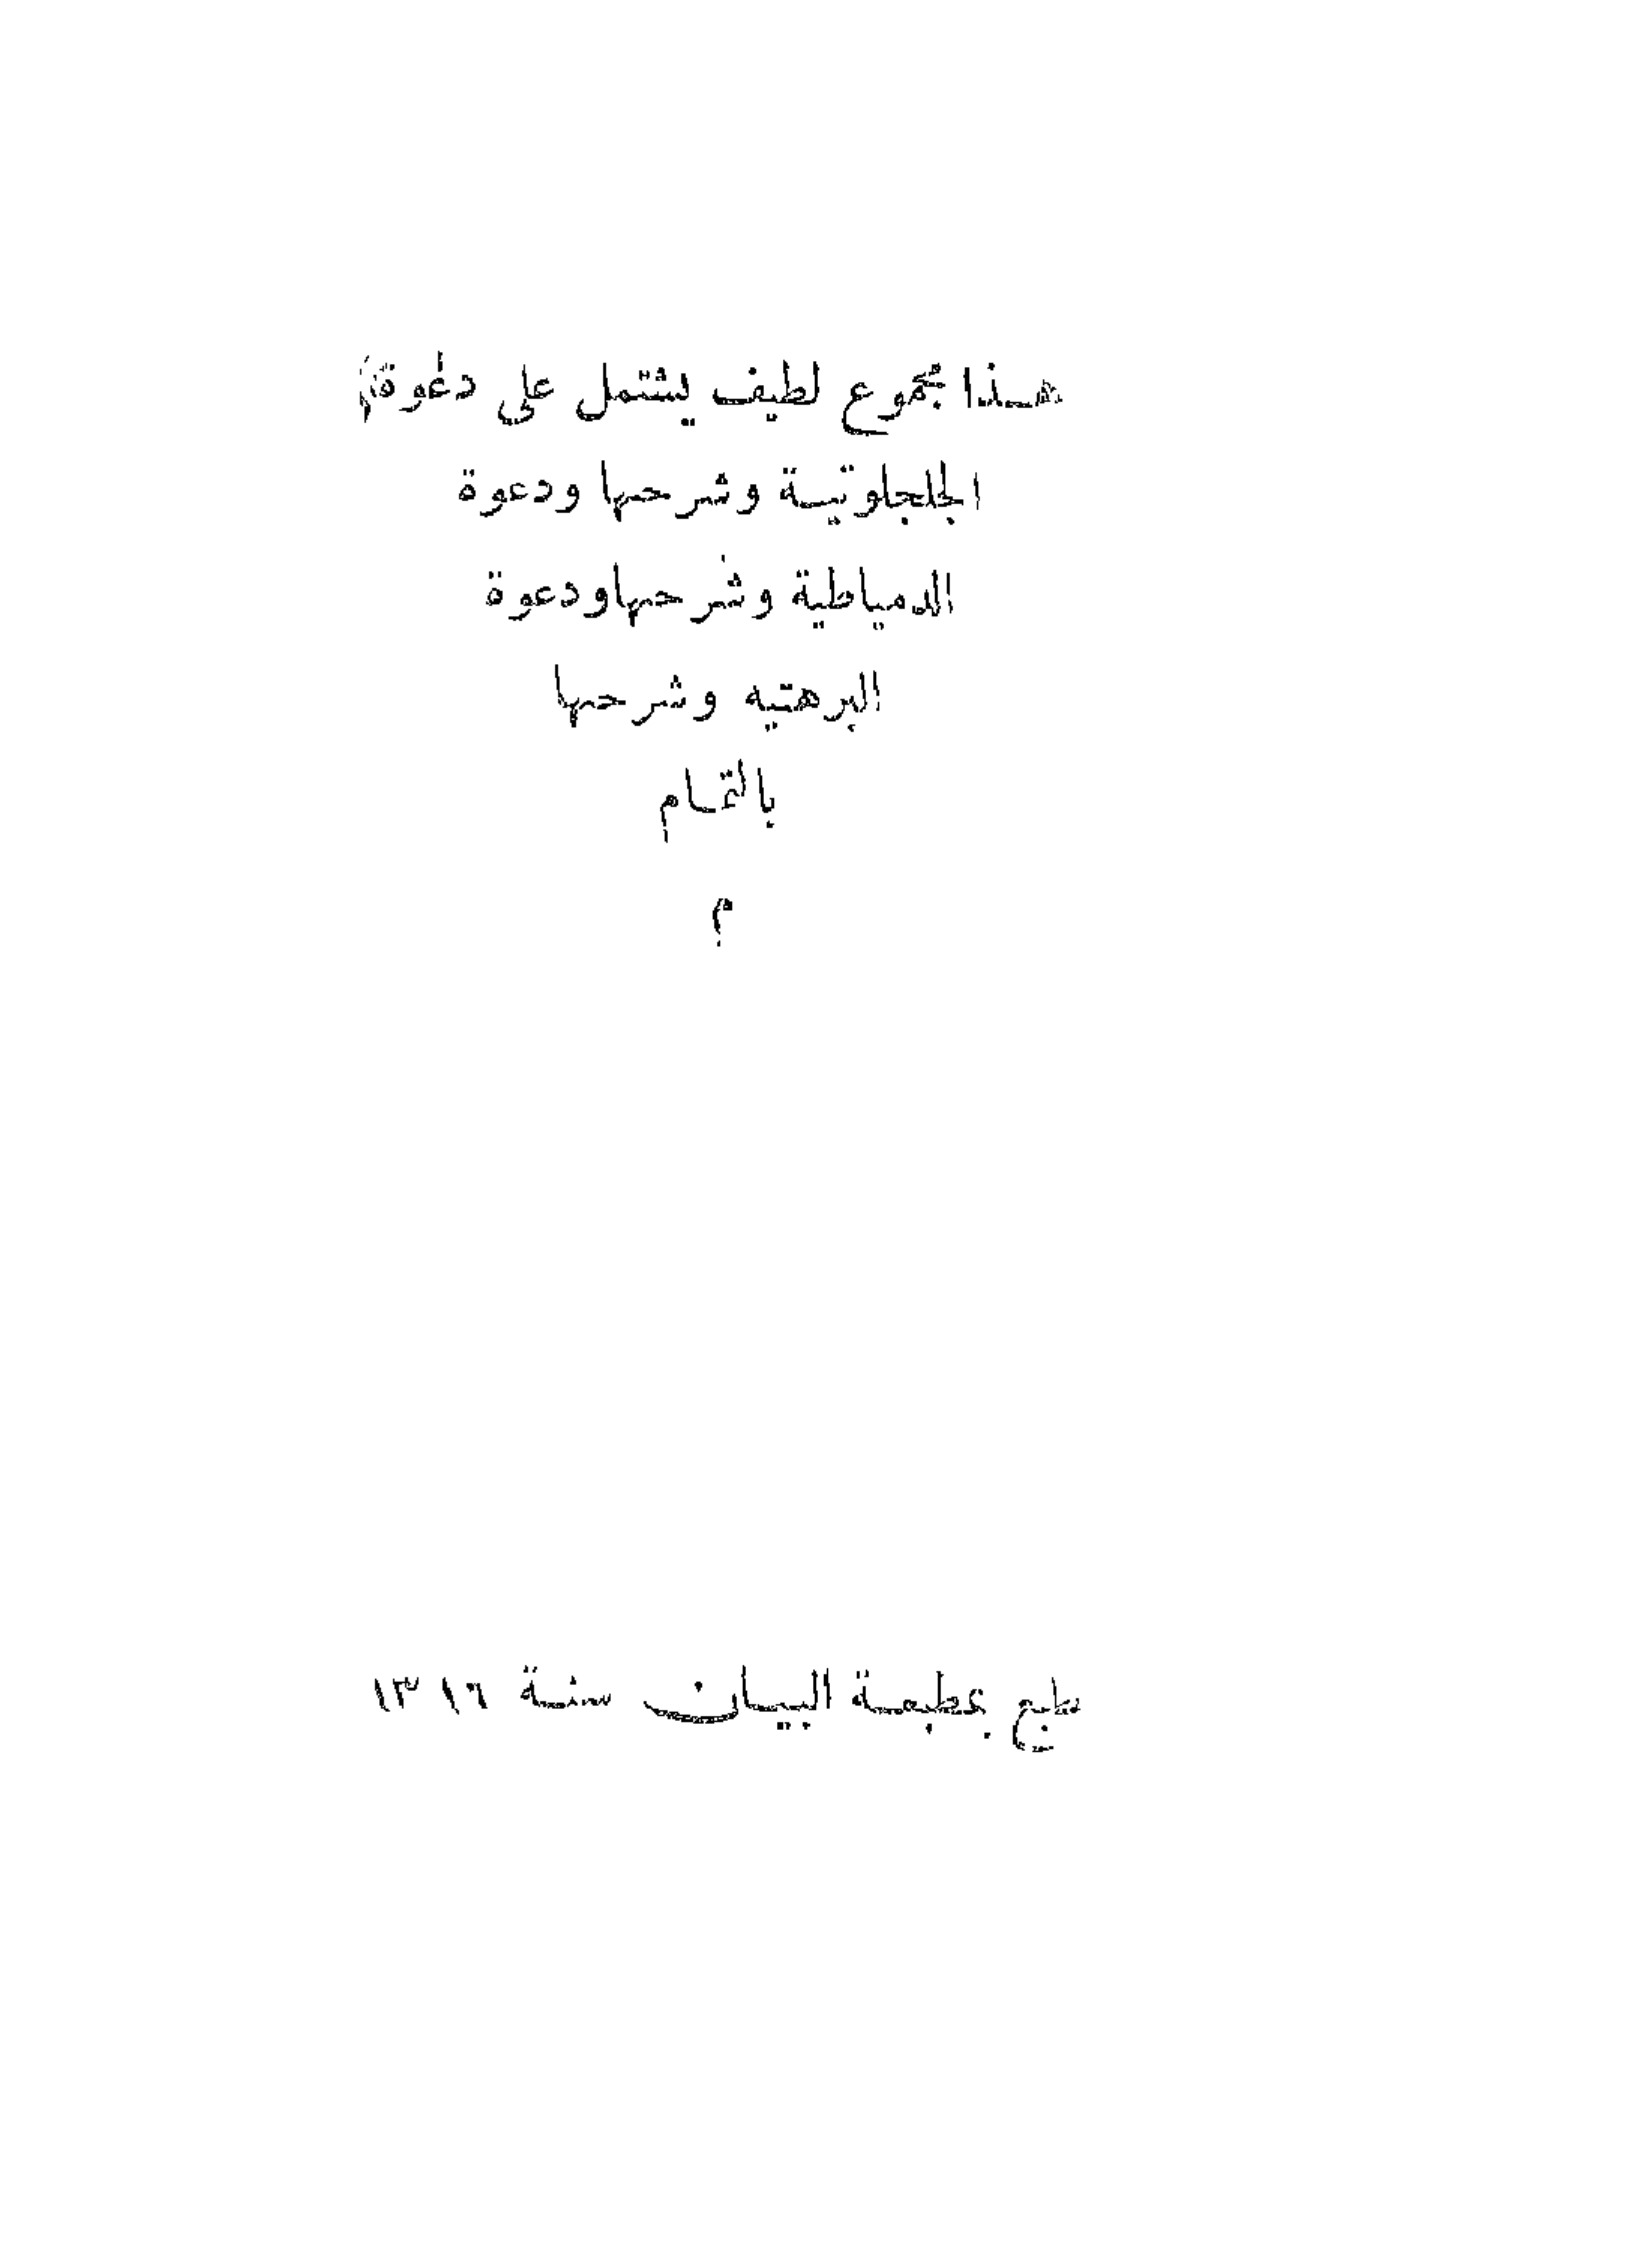 هذا مجموع لطيف يشتمل على دعوة
الجلجلوتية وشرحها ودعوة
الدمياطية وشرحها ودعوة
البرهتيه وشرحها
بالتمام
م
طبع بمطبعة البيان سنة ١٣١٦